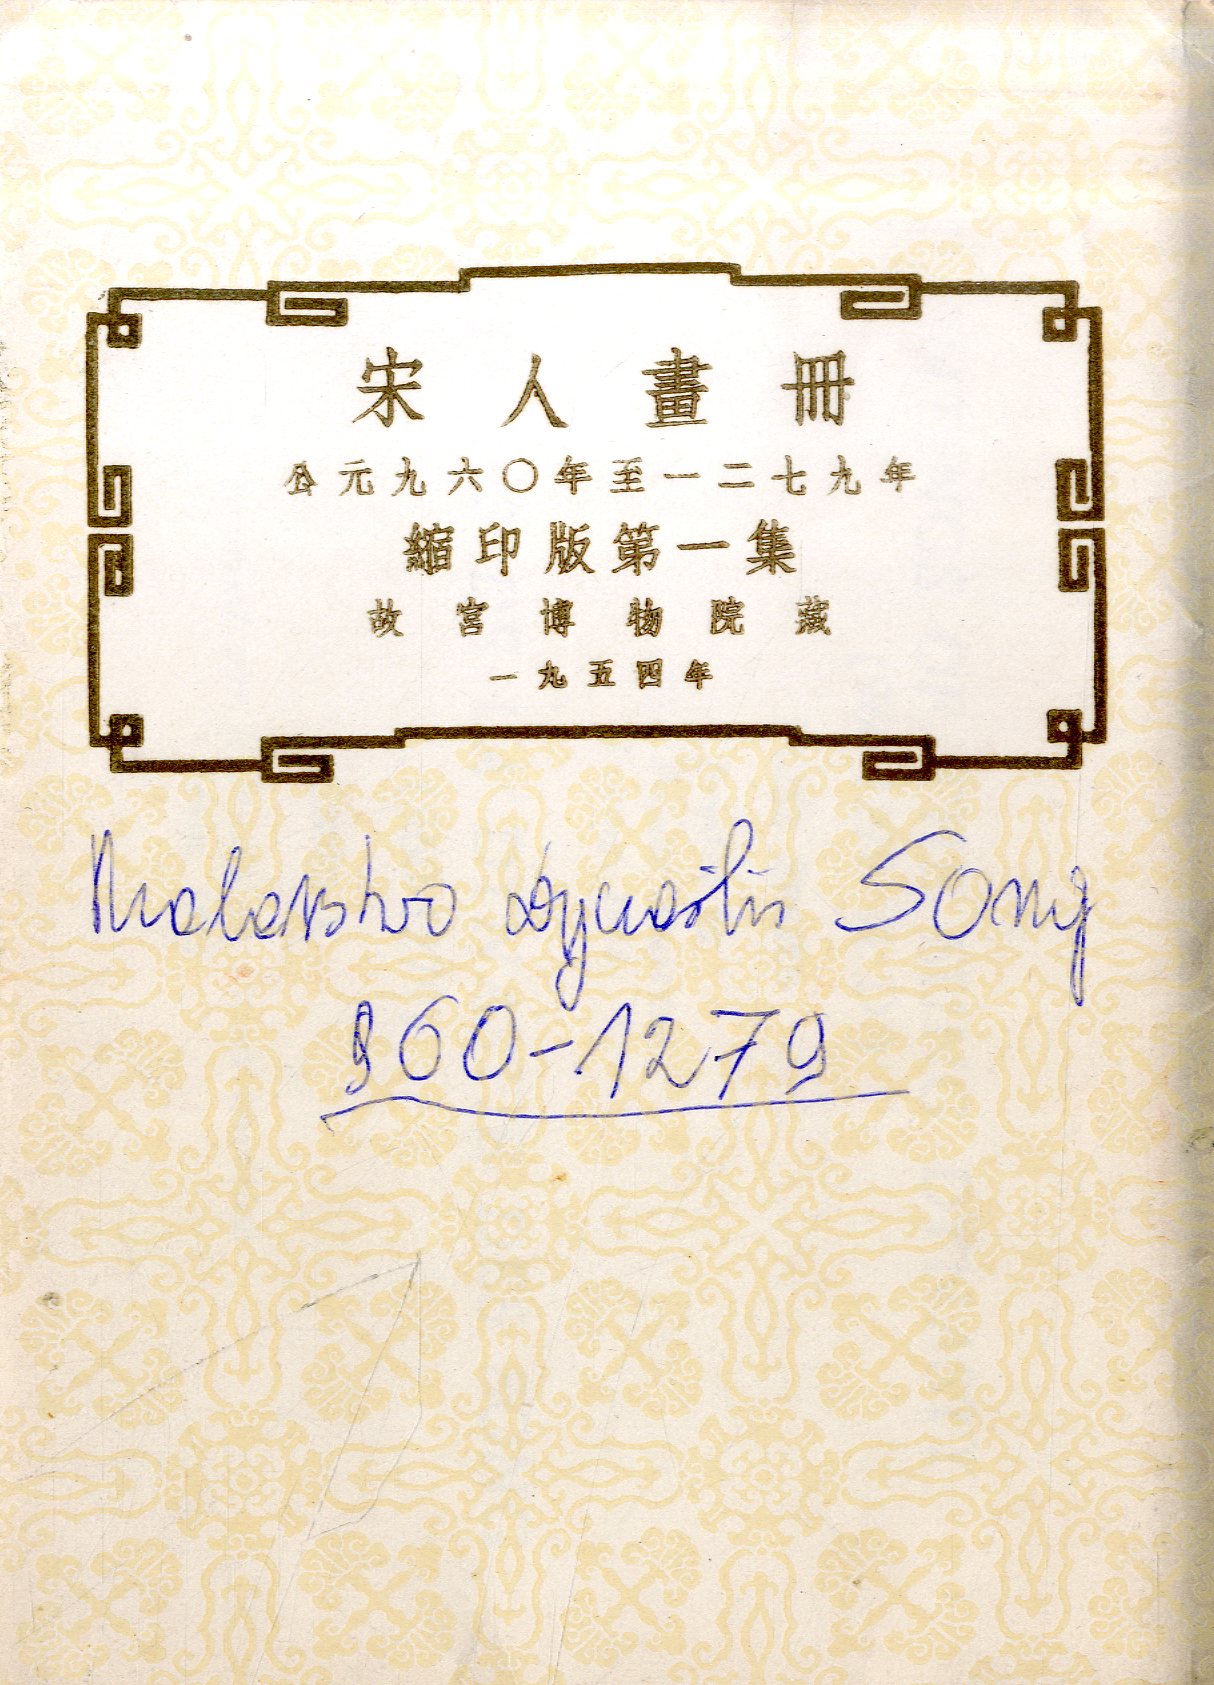 宋人畫冊
公元九六〇年至一二七九年
縮印版第一集
故宮博物院藏
一九五四年
Malarstwo dynastii Song
960-1279